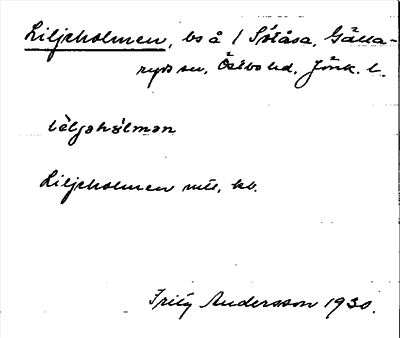 Liljeholmen, bs å 1 Sötåsa, Gälla-
ryds sn, Östbo hd, Jönk. l.
lèljəhȯlmən
Liljeholmen mtl, kb.
Fritz Andersson 1930.